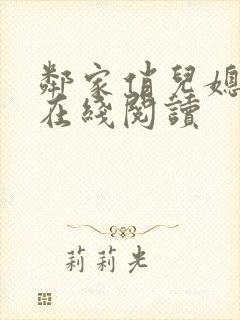 鄰家俏兒媳
在綫閱讀
莉莉光